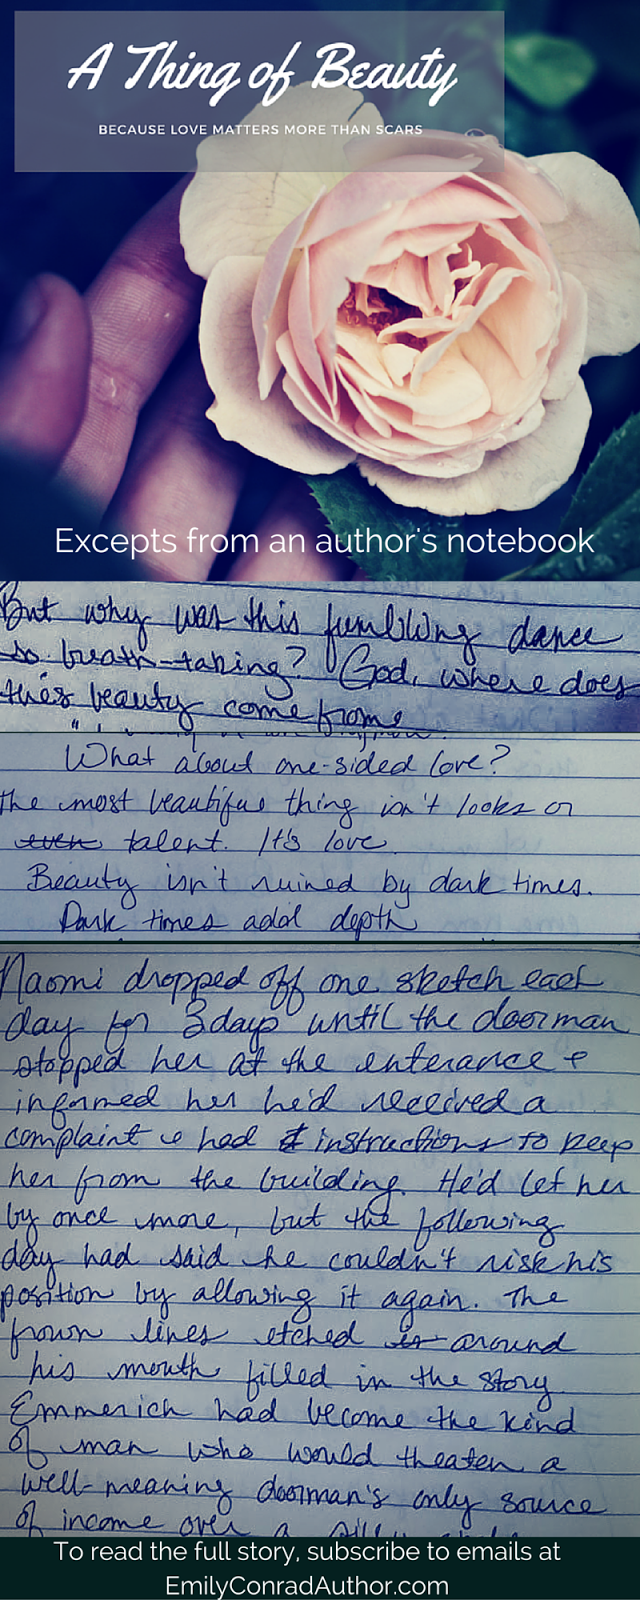 A Thing of Beauty
BECAUSE LOVE MATTERS MORE THAN SCARS
Excepts from an author's notebook
But why was this fumbling dance
so breath-taking? God, where does
this beauty come from
What about one-sided love?
The most beautiful thing isn't looks or
even talent. It's love.
Beauty isn't ruined by dark times.
Dark times add depth
Naomi dropped off one sketch each
day for 3 days until the doorman
stopped her at the enterance &
informed her he'd received a
complaint & had instructions to keep
her from the building. He'd let her
by once more, but the following
day had said he couldn't risk his
position by allowing it again. The
frown lines etched around
his mouth filled in the story
Emmerich had become the kind
of man who would theaten a
well-meaning doorman's only source
of income over a
To read the full story, subscribe to emails at
EmilyConradAuthor.com